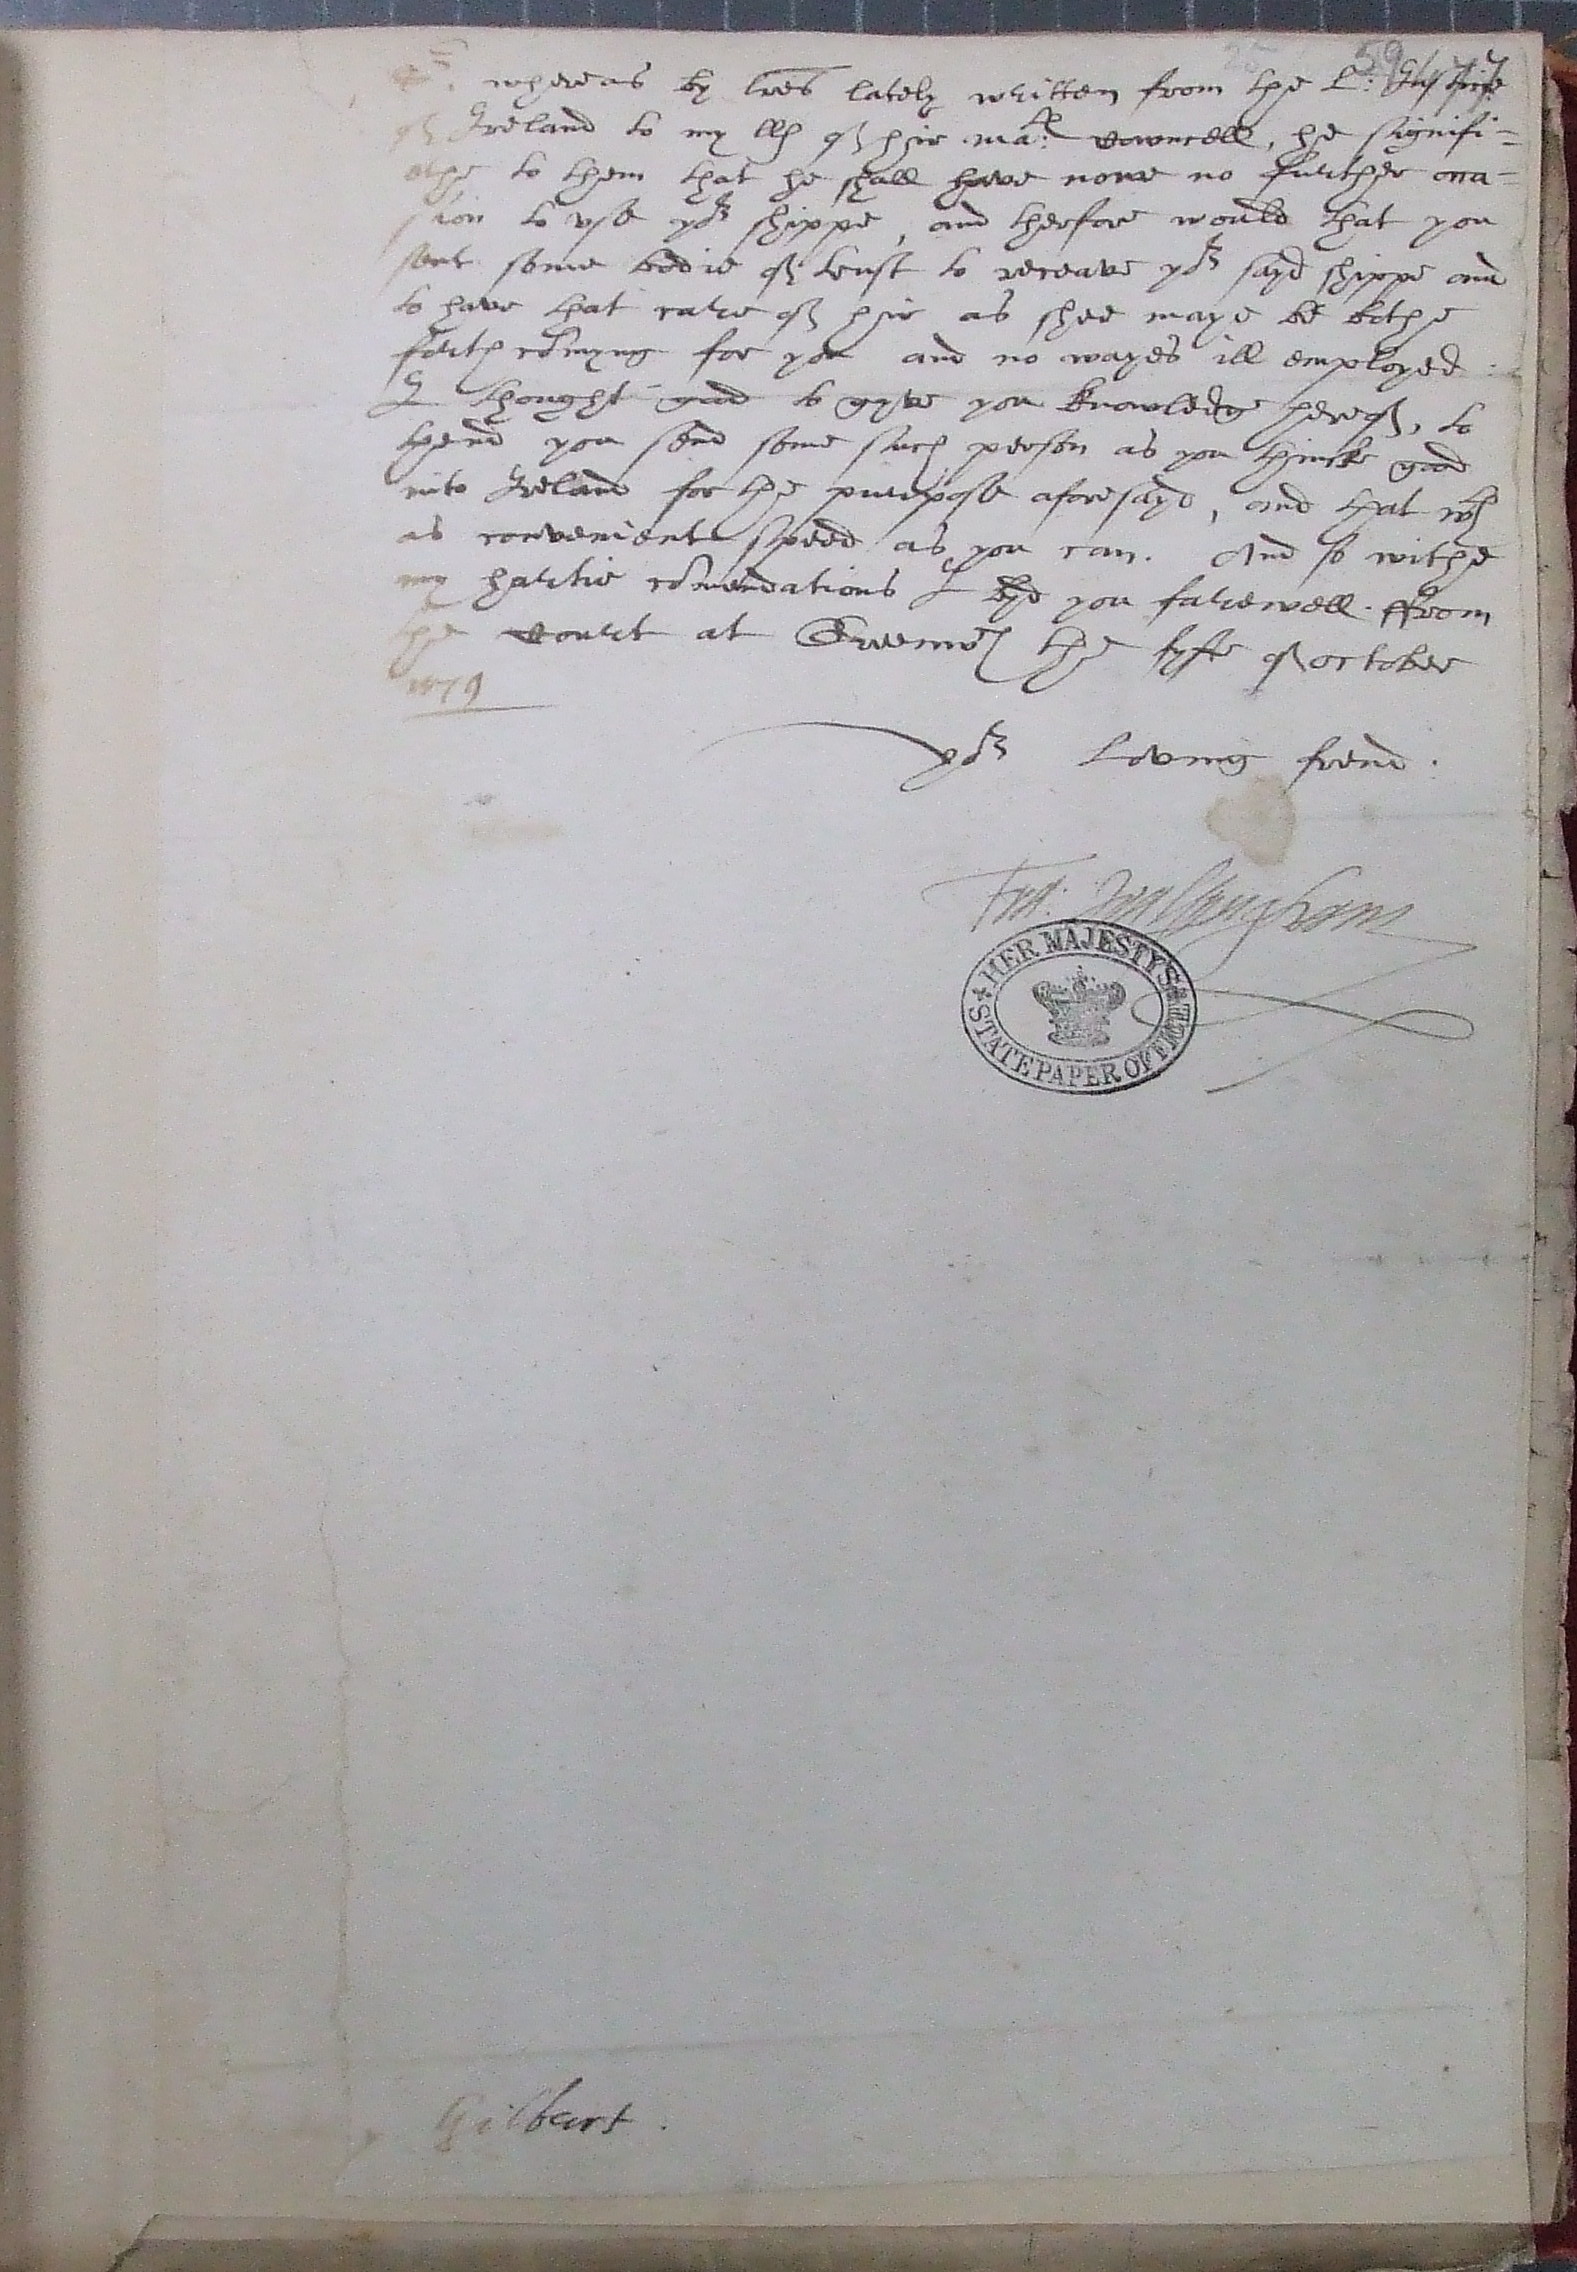 Sr. whereas by lres lately written from the L: Justice
of Ireland to my llh of hir Matie Councell, he signifi=
ethe to them that he shall have nowe no further occa=
sion to use yor shippe, and therfore would that you
sent some bodie of trust to receave yor sayd shippe and
to have that care of hir as shee maye be bothe
forth comyng for you and no wayes ill employed.
I thought good to gyve you knowledg hereof, to
thend you send some such person as you thincke good
into Ireland for the purpose aforesayd, and that wth
as convenient speed as you can. And so withe
my hartie comendations I byd you farewell. ffrom
the Court at Grenewch the fyfte of october
1579
yor Loving frend.
Fra: Walsyngham
HER MAJESTY'S
STATE PAPER OFFICE
Gilbert.